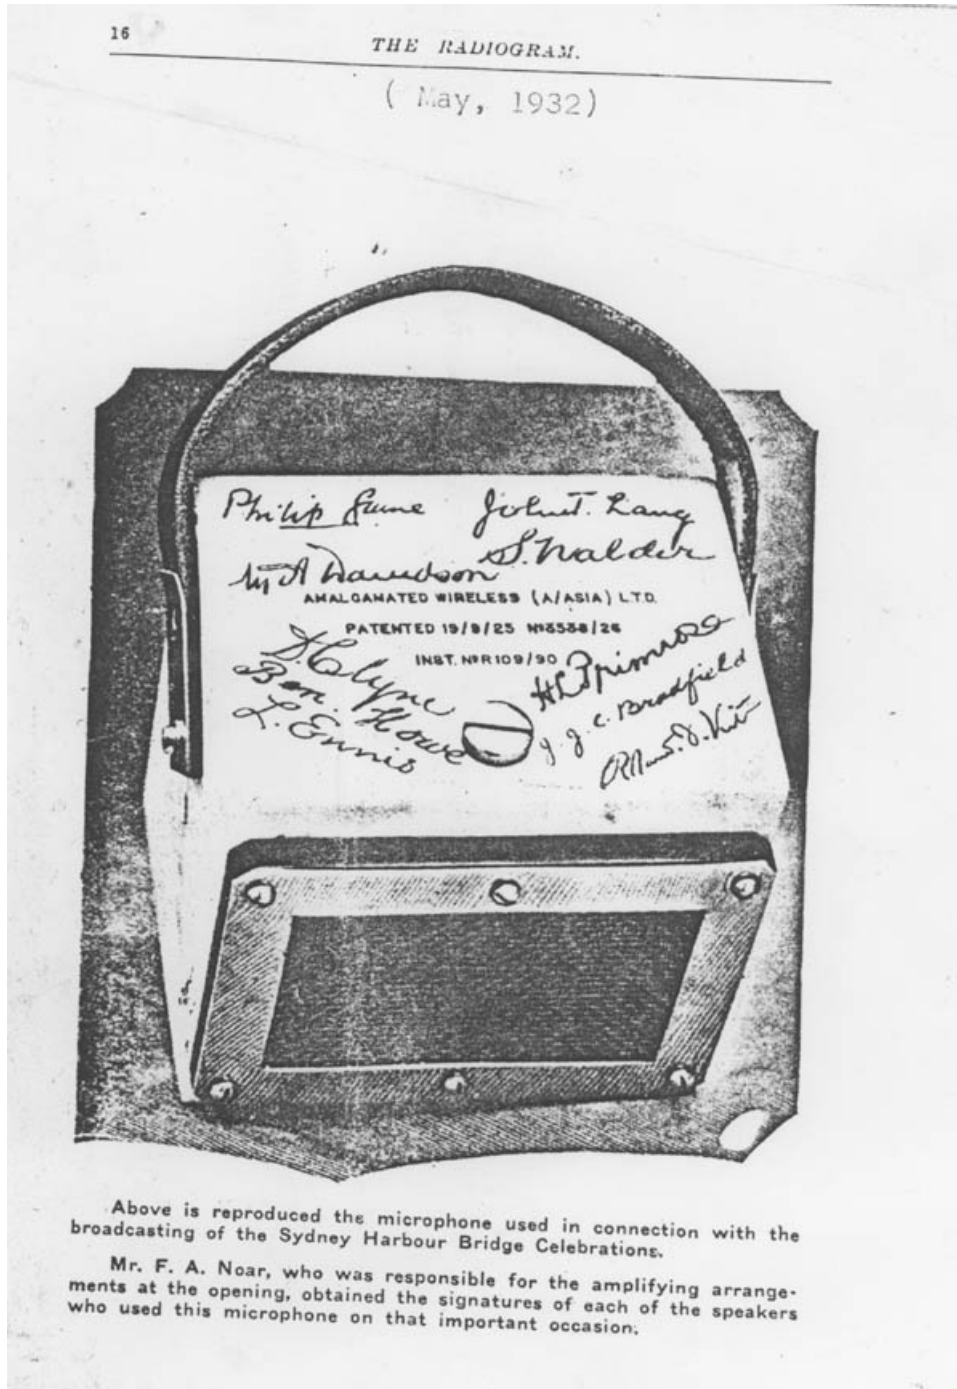 16
THE RADIOGRAM.
( May, 1932)
Philip Game
John T. Lang
S. Walder
M A Davidson
AMALGAMATED WIRELESS (A/ASIA) LTD.
PATENTED 19/9/25 Nº8588/26
INST. NºR109/90
D. Clyne
Ben. Howe
L. Ennis
H L Primrose
J. J. C. Bradfield
Above is reproduced the microphone used in connection with the
broadcasting of the Sydney Harbour Bridge Celebrations.
Mr. F. A. Noar, who was responsible for the amplifying arrange-
ments at the opening, obtained the signatures of each of the speakers
who used this microphone on that important occasion.